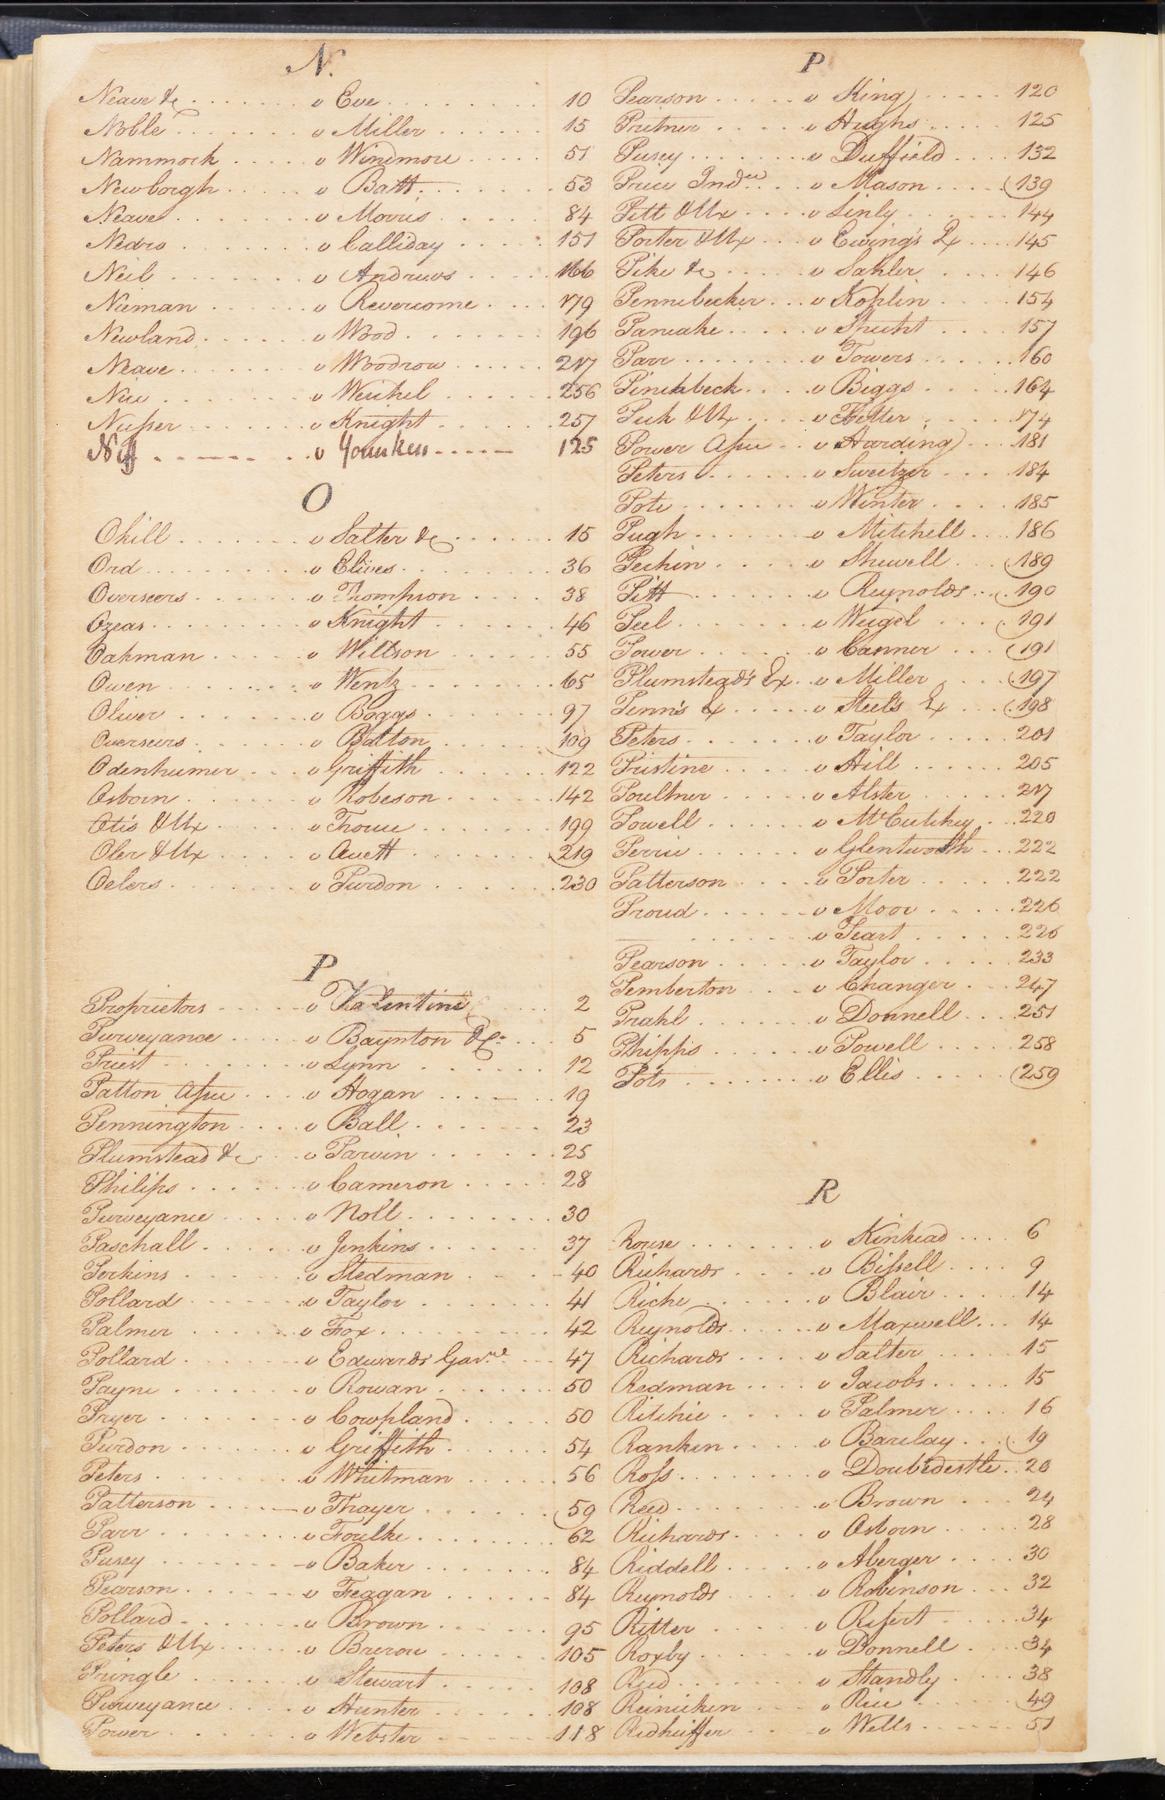 N.
Neave &c v Eve 10
Noble v Miller 15
Nammock v Windmore 51
Newborgh v Batt 53
Neave v Morris 84
Nedro v Calliday 151
Neil v Andrews 166
Nieman v Revercome 179
Newland v Wood 196
Neave v Woodrow 217
Nice v Weikel 256
Nusser v Knight 257
Neff v Younken 125
O
Okill v Salter &c 15
Ord v Elives 36
Overseers v Thompson 38
Ozeas v Knight 46
Oakman v Willson 55
Owen v Wentz 65
Oliver v Boggs 97
Overseers v Batton 109
Odenheimer v Griffith 122
Osborn v Robeson 142
Otis & Ux v Thorne 199
Oler & Ux v Avett 219
Oelers v Purdon 230
P
Proprietors v Valentine 2
Purveyance v Baynton &c 5
Priest v Lynn 12
Patton Assee v Hogan 19
Pennington v Ball 23
Plumstead &c v Parvin 25
Philips v Cameron 28
Purveyance v Noll 30
Paschall v Jenkins 37
Perkins v Stedman 40
Pollard v Taylor 41
Palmer v Fox 42
Pollard v Edwards Gar.ee 47
Payne v Rowan 50
Pryer v Cowpland 50
Purdon v Griffith 54
Peters v Whitman 56
Patterson v Thayer 59
Parr v Foulke 62
Pusey v Baker 84
Pearson v Feagan 84
Pollard v Brown 95
Peters & Ux v Brerow 105
Pringle v Stewart 108
Purveyance v Hunter 108
Power v Webster 118
P
Pearson v King 120
Pritner v Hughs 125
Pusey v Duffield 132
Price Indee v Mason 139
Pitt & Ux v Linly 144
Porter & Ux v Ewing's Ex 145
Pike &c v Sahler 146
Pennebecker v Koplin 154
Pancake v Shecht 157
Parr v Towers 160
Pinchbeck v Biggs 164
Peck & Ux v Fetter 174
Power Assee v Harding 181
Peters v Sweitzer 184
Pote v Winter 185
Pugh v Mitchell 186
Pechin v Shewell 189
Pitt v Reynolds 190
Peel v Weigel 191
Power v Canner 191
Plumstead's Ex v Miller 197
Penn's Ex v Steel's Ex 198
Peters v Taylor 201
Pristine v Hill 205
Poultner v Alster 217
Powell v McCutchy 220
Perrie v Glentworth 222
Patterson v Porter 222
Proud v Moor 226
v Peart 226
Pearson v Taylor 233
Pemberton v Changer 247
Prahl v Donnell 251
Phipps v Powell 258
Pots v Ellis 259
R
Rouse v Kinhead 6
Richards v Bissell 9
Riche v Blair 14
Reynolds v Maxwell 14
Richards v Salter 15
Redman v Jacobs 15
Ritchie v Palmer 16
Ranken v Barclay 19
Ross v Doubedestle 20
Reed v Brown 24
Richards v Osborn 28
Riddell v Aberger 30
Reynolds v Robinson 32
Ritter v Resert 34
Roxby v Donnell 34
Reed v Standly 38
Reinicken v Rice 49
Redheiffer v Wells 51